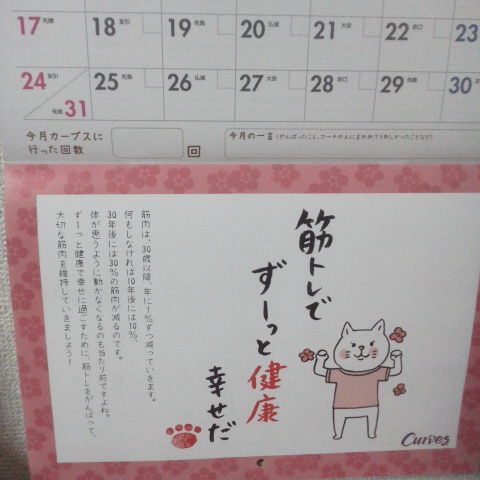 17 先勝 18 友引 19 先負 20 仏滅 21 大安 22 赤口 23
24 友引 25 先負 26 仏滅 27 大安 28 赤口 29 先勝 30
先負 31
今月カーブスに
行った回数 回
今月の一言(がんばったこと、コーチや人に言われてうれしかったことなど)
筋トレで
ずーっと
健康
幸せだ
筋肉は、30歳以降、年に1%ずつ減っていきます。
何もしなければ10年後には10%、
30年後には30%の筋肉が減るのです。
体が思うように動かなくなるのも当たり前ですよね。
ずーっと健康で幸せに過ごすために、筋トレをがんばって、
大切な筋肉を維持していきましょう!
Curves